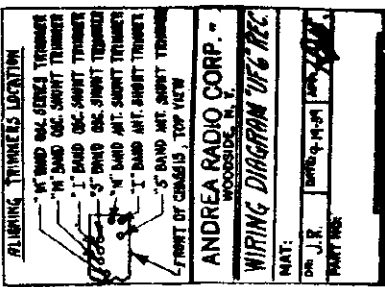 ALIGNING TRIMMERS LOCATION
"M" BAND OSC. SERIES TRIMMER
"M" BAND OSC. SHUNT TRIMMER
"I" BAND OSC. SHUNT TRIMMER
"S" BAND OSC. SHUNT TRIMMER
"M" BAND ANT. SHUNT TRIMMER
"I" BAND ANT. SHUNT TRIMMER
"S" BAND ANT. SHUNT TRIMMER
FRONT OF CHASSIS, TOP VIEW
ANDREA RADIO CORP. -
WOODSIDE, N. Y.
WIRING DIAGRAM "UF6" REC.
MAT:
DR: J.R. DATE: 9-19-39 APP.
PART NO: